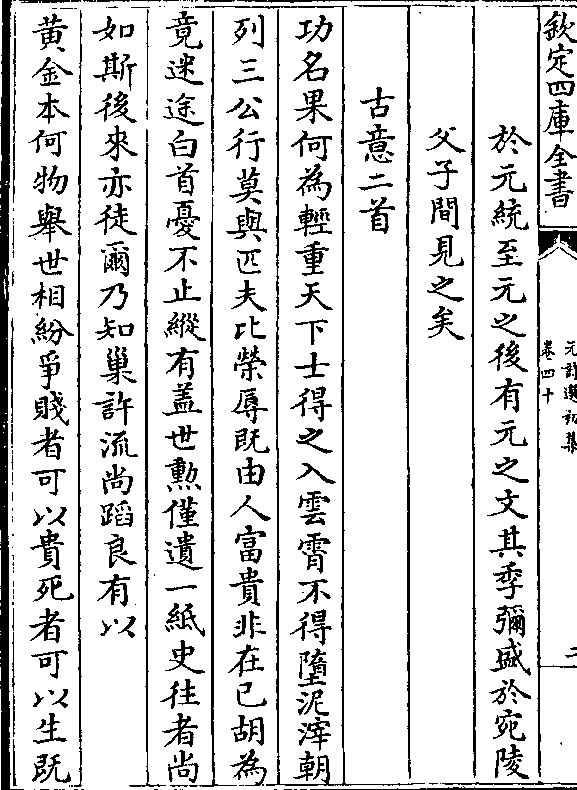 欽定四庫全書
元詩選初集
卷四十
二
於元統至元之後有元之文其季彌盛於宛陵
父子間見之矣
古意二首
功名果何為輕重天下士得之入雲霄不得墮泥滓朝
列三公行莫與匹夫比榮辱既由人富貴非在已胡為
竟迷途白首憂不止縱有蓋世勲僅遺一紙史往者尚
如斯後來亦徒爾乃知巢許流尚蹈良有以
黄金本何物舉世相紛爭賤者可以貴死者可以生既